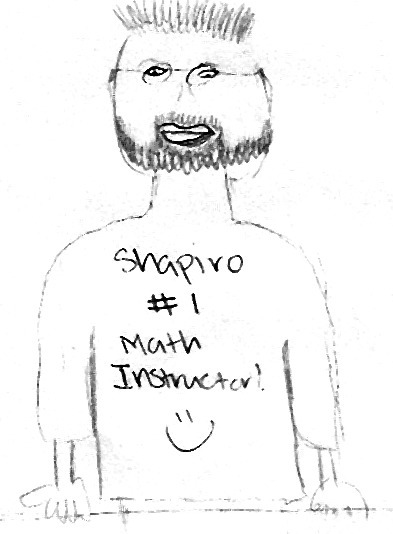 Shapiro
# 1
Math
Instructor!